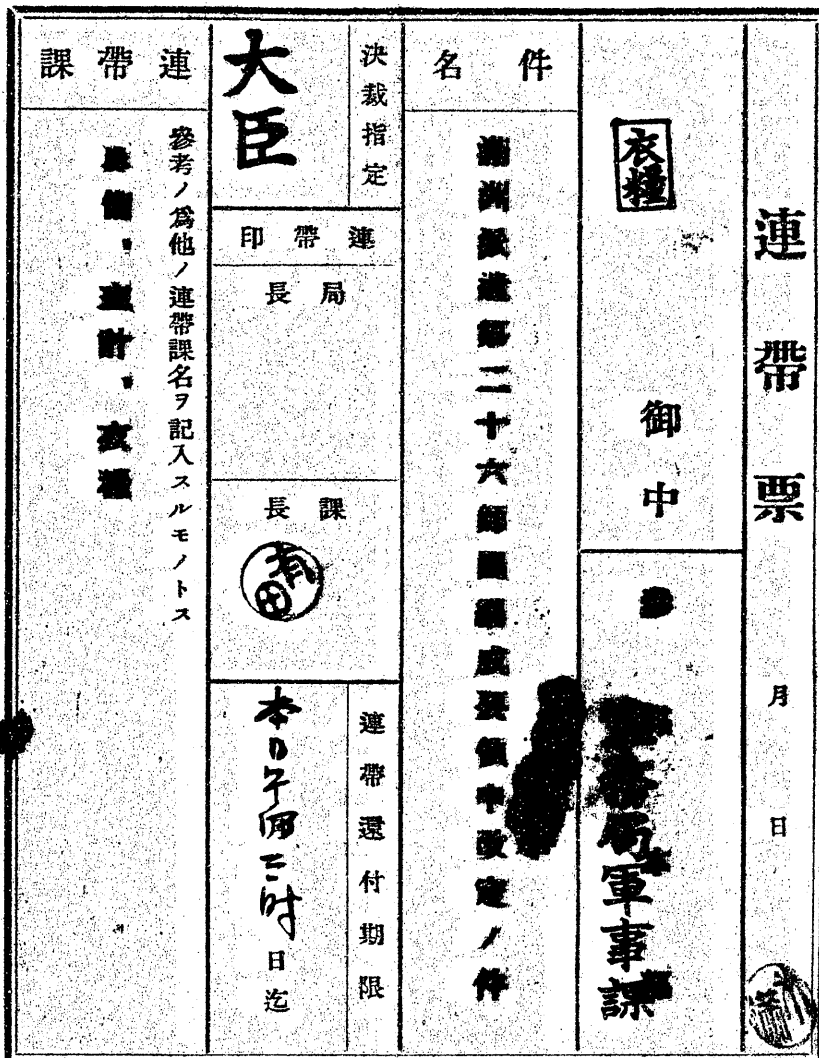 連帶票
月 日
衣糧
御中
務局軍事課
件名
滿洲派遣第二十六師團編成要領中改定ノ件
決裁指定
大臣
連帶印
局長
課長
連帶還付期限
日迄
連帶課
參考ノ爲他ノ連帶課名ヲ記入スルモノトス
兵備、主計、衣糧